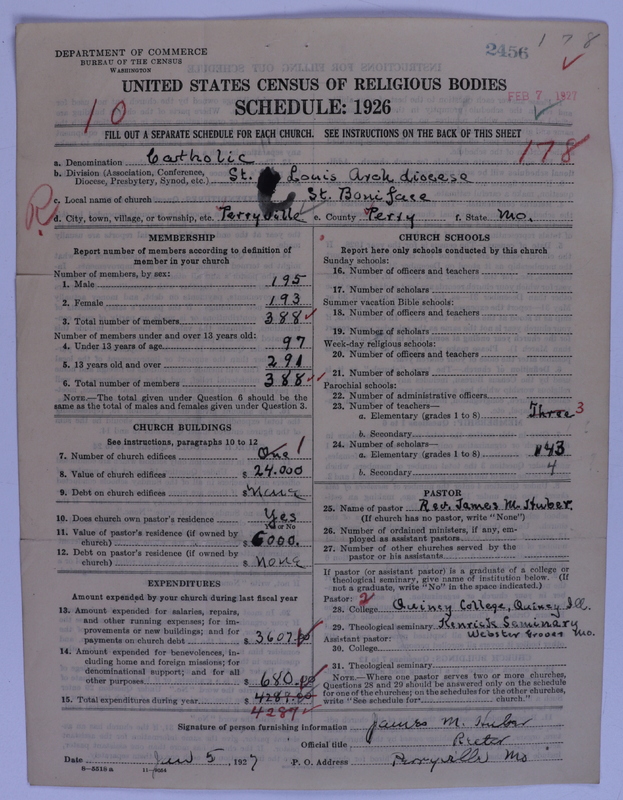 DEPARTMENT OF COMMERCE
BUREAU OF THE CENSUS
WASHINGTON
2456
178
UNITED STATES CENSUS OF RELIGIOUS BODIES
SCHEDULE: 1926
FEB 7 1927
10
FILL OUT A SEPARATE SCHEDULE FOR EACH CHURCH. SEE INSTRUCTIONS ON THE BACK OF THIS SHEET
178
a. Denomination Cartholic
b. Division (Association, Conference, Diocese, Presbytery, Synod, etc.) St. Louis Arch diocese
c. Local name of church St. Boniface
d. City, town, village, or township, etc. Perryville e. County Perry f. State Mo.
MEMBERSHIP
Report number of members according to definition of
member in your church
Number of members, by sex:
1. Male 195
2. Female 193
3. Total number of members 388
Number of members under and over 13 years old:
4. Under 13 years of age 97
5. 13 years old and over 291
6. Total number of members 388
NOTE.—The total given under Question 6 should be
same as the total of males and females given under Question 3.
CHURCH BUILDINGS
See instructions, paragraphs 10 to 12
7. Number of church edifices One 1
8. Value of church edifices $ 24.000
9. Debt on church edifices $ None
10. Does church own pastor's residence Yes
Yes or No
11. Value of pastor's residence (if owned by
church) $ 6000.
12. Debt on pastor's residence (if owned by
church) $ None
EXPENDITURES
Amount expended by your church during last fiscal year
13. Amount expended for salaries, repairs,
and other running expenses; for im-
provements or new buildings; and for
payments on church debt $ 3607.00
14. Amount expended for benevolences, in-
cluding home and foreign missions; for
denominational support; and for all
other purposes $ 680.00
15. Total expenditures during year $ 4287.00
4287
CHURCH SCHOOLS
Report here only schools conducted by this church
Sunday schools:
16. Number of officers and teachers
17. Number of scholars
Summer vacation Bible schools:
18. Number of officers and teachers
19. Number of scholars
Week-day religious schools:
20. Number of officers and teachers
21. Number of scholars
Parochial schools:
22. Number of administrative officers
23. Number of teachers—
a. Elementary (grades 1 to 8) Three 3
b. Secondary
24. Number of scholars—
a. Elementary (grades 1 to 8) 143
b. Secondary 4
PASTOR
25. Name of pastor Rev. James M. Huber
(If church has no pastor, write "None")
26. Number of ordained ministers, if any, em-
ployed as assistant pastors
27. Number of other churches served by the
pastor or his assistants
If pastor (or assistant pastor) is a graduate of a college or
theological seminary, give name of institution below. (If
not a graduate, write "No" in the space indicated.)
Pastor: 2
28. College Quincy College, Quincy Ill.
29. Theological seminary Kenrick Seminary
Assistant pastor: Webster Groves Mo.
30. College
31. Theological seminary
NOTE.—Where one pastor serves two or more churches,
Questions 28 and 29 should be answered only on the schedule
for one of the churches; on the schedules for the other churches,
write "See schedule for church."
Signature of person furnishing information James M. Huber
Official title Rector
Date Jan 5, 1927 P. O. Address Perryville Mo
8—5518 a 11—9054